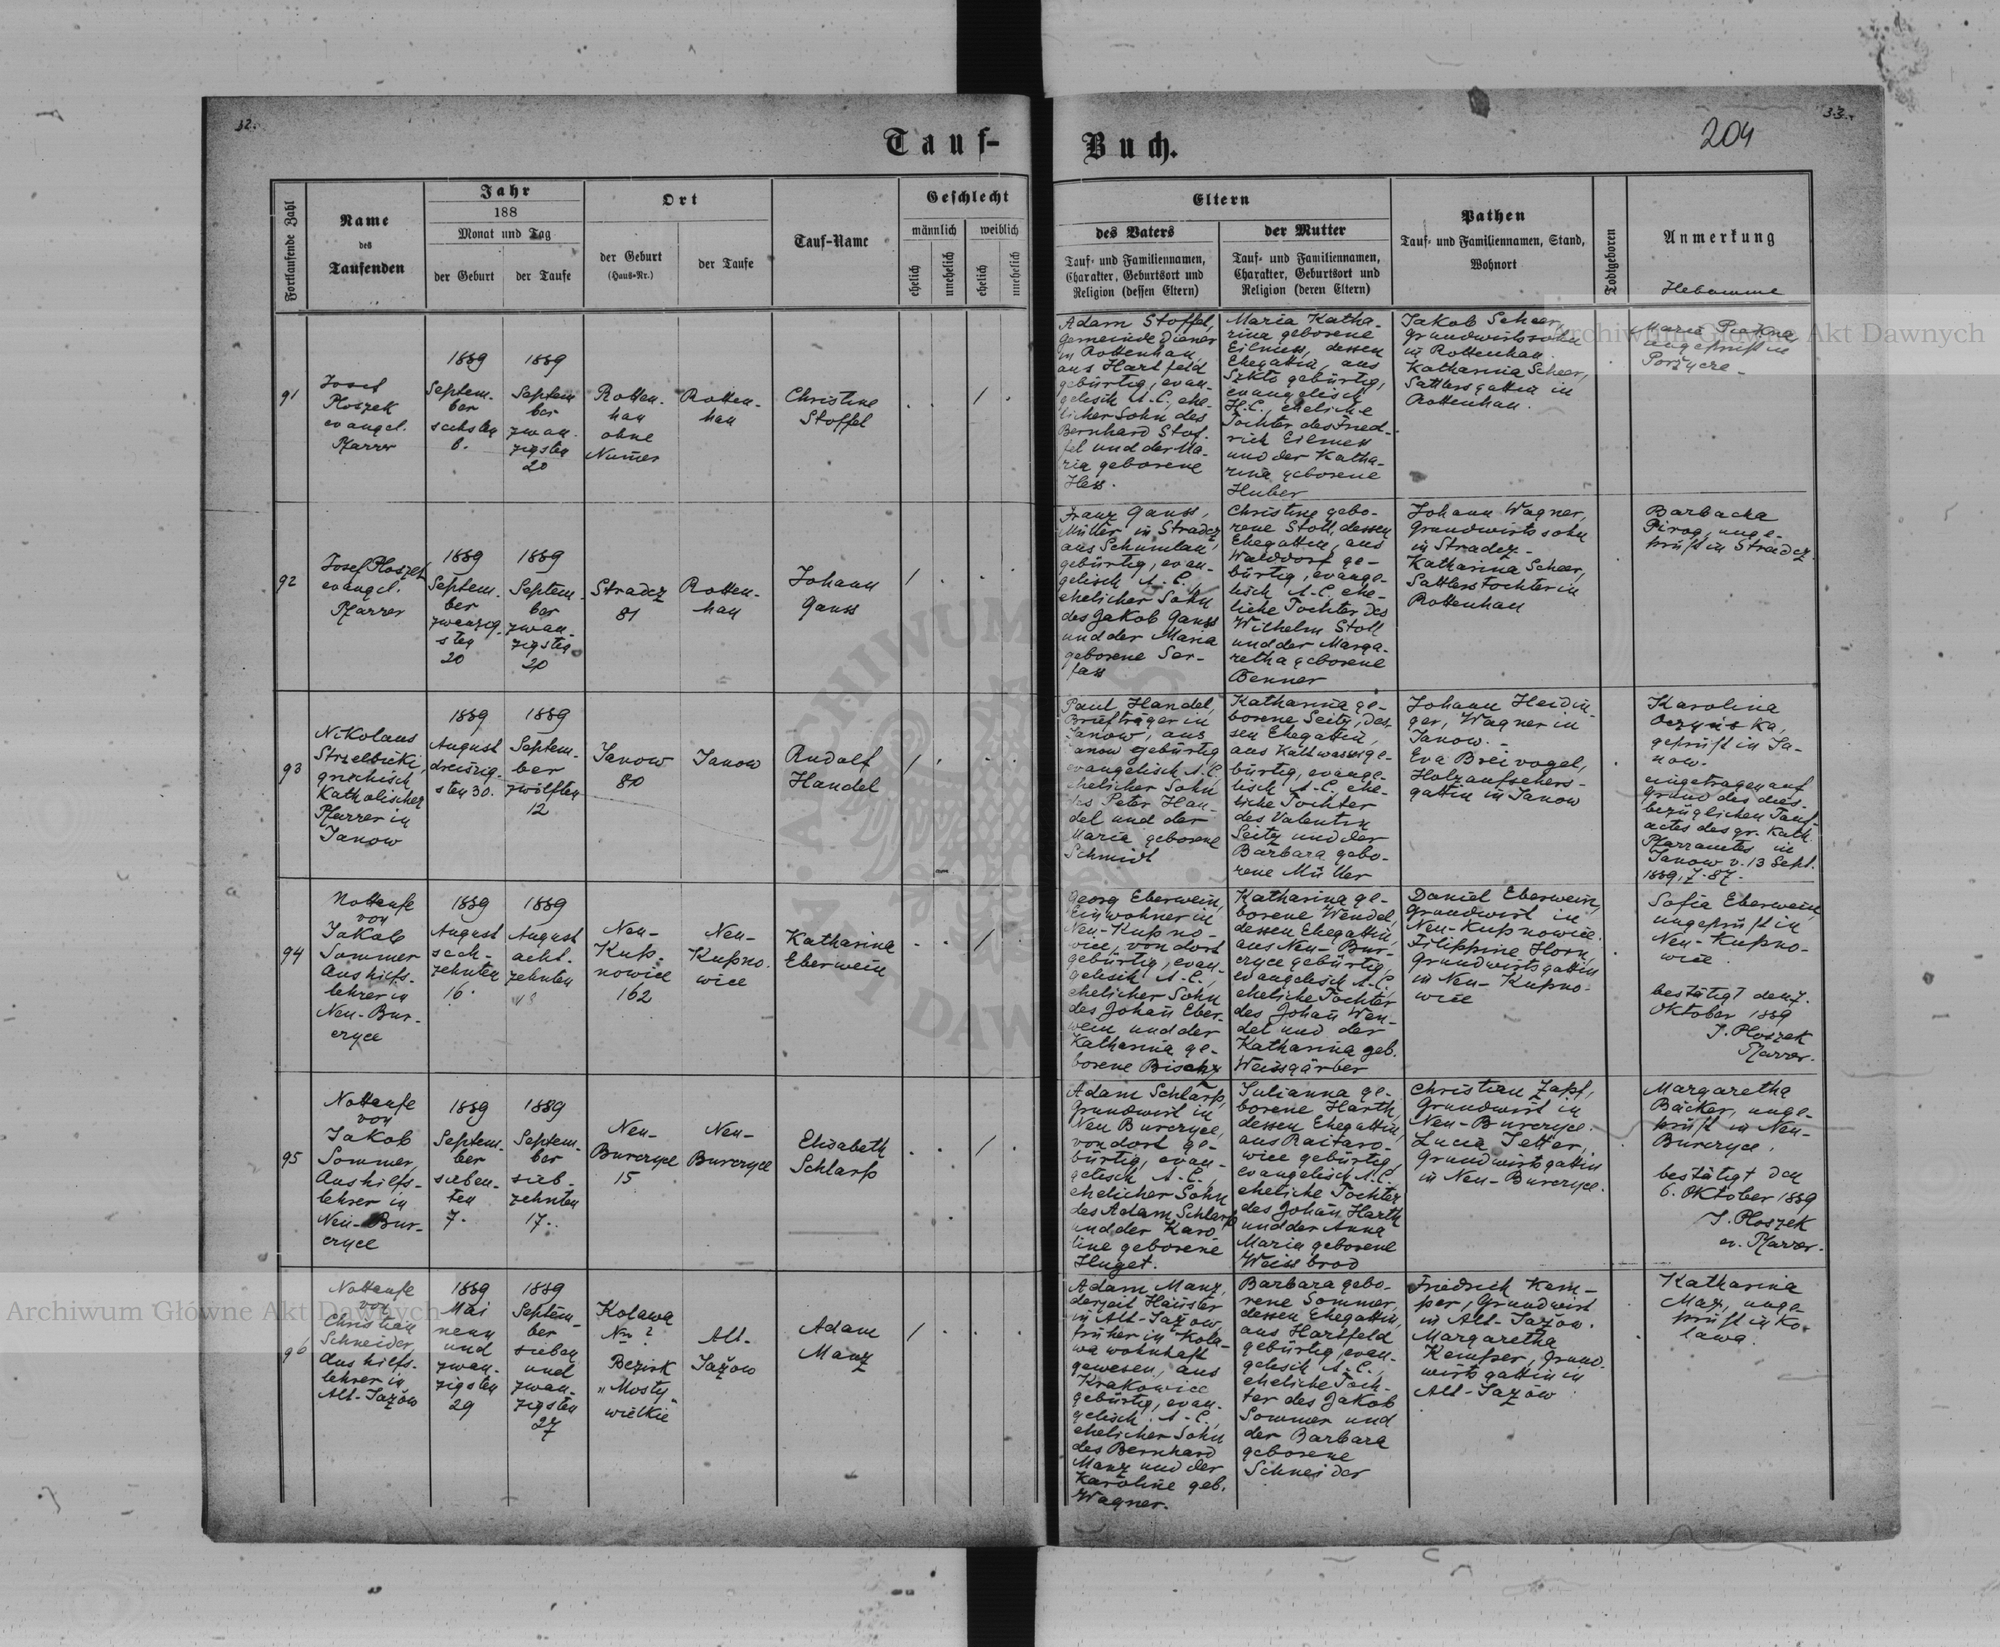 32.
33.
204
Tauf-
Buch.
Fortlaufende Zahl
Name
des
Taufenden
Jahr
188
Monat und Tag
der Geburt
der Taufe
Ort
der Geburt
(Haus-Nr.)
der Taufe
Tauf-Name
Geschlecht
männlich
weiblich
ehelich
unehelich
ehelich
unehelich
Eltern
des Vaters
Tauf- und Familiennamen,
Charakter, Geburtsort und
Religion (dessen Eltern)
der Mutter
Tauf- und Familiennamen,
Charakter, Geburtsort und
Religion (deren Eltern)
Pathen
Tauf- und Familiennamen, Stand,
Wohnort
Todtgeboren
Anmerkung
Hebamme
91
Josef
Ploszek
evangel.
Pfarrer
1889
Septem-
ber
sechsten
6.
1889
Septem
ber
zwan-
zigsten
20
Rotten-
han
ohne
Numer
Rotten-
han
Christine
Stoffel
/
Adam Stoffel,
Gemeindediener
in Rottenhan,
aus Hartfeld
gebürtig, evan-
gelisch A.C., ehe-
licher Sohn des
Bernhard Stof-
fel und der Ma-
ria geborene
Hess.
Maria Katha-
rina geborene
Eilmess, dessen
Ehegattin, aus
Szkło gebürtig,
evangelisch
H.C., eheliche
Tochter des Fried-
rich Eilmess
und der Katha-
rina geborene
Huber
Jakob Scheer,
Grundwirtssohn
in Rottenhan.
Katharina Scheer,
Sattlersgattin in
Rottenhan.
Maria
ungeprüft in
Porzycze.
92
Josef Ploszek
evangel.
Pfarrer
1889
Septem-
ber
zwanzig-
sten
20
1889
Septem-
ber
zwan-
zigsten
20
Stradcz
81
Rotten-
han
Johann
Gauss
/
Franz Gauss,
Müller in Stradcz,
aus Schumlau
gebürtig, evan-
gelisch A.C.,
ehelicher Sohn
des Jakob Gauss
und der Maria
geborene Ser-
fass
Christine gebo-
rene Stoll, dessen
Ehegattin, aus
Walddorf ge-
bürtig, evange-
lisch A.C., ehe-
liche Tochter des
Wilhelm Stoll
und der Marga-
retha geborene
Benner
Johann Wagner,
Grundwirtssohn
in Stradcz.-
Katharina Scheer,
Sattlerstochter in
Rottenhan
Barbara
Pirog, unge-
prüft in Stradcz.
93
Nikolaus
Strzelbicki,
griechisch
Katholischer
Pfarrer in
Janow
1889
August
dreissig-
sten 30.
1889
Septem-
ber
zwölften
12
Janow
80
Janow
Rudolf
Handel
/
Paul Handel,
Briefträger in
Janow, aus
Janow gebürtig
evangelisch A.C.,
ehelicher Sohn
des Peter Han-
del und der
Maria geborene
Schmidt
Katharina ge-
borene Seitz, des-
sen Ehegattin,
aus Kaltwasser ge-
bürtig, evange-
lisch A.C. ehe-
liche Tochter
des Valentin
Seitz und der
Barbara gebo-
rene Müller
Johann Heidin-
ger, Wagner in
Janow.-
Eva Breivogel,
Holzaufsehers-
gattin in Janow
Karolina
geprüft in Ja-
now.
eingetragen auf
Grund des dies-
bezüglichen Tauf-
actes des gr. kath.
Pfarramtes in
Janow v. 13 Sept.
1889, Z. 87.
94
Nottaufe
von
Jakob
Sommer
Aushilfs-
lehrer in
Neu-Bur-
czyce
1889
August
sech-
zehnten
16.
1889
August
acht-
zehnten
18
Neu-
Kupno-
wice
162
Neu-
Kupno-
wice
Katharina
Eberwein
/
Georg Eberwein,
Einwohner in
Neu-Kupno-
wice, von dort
gebürtig, evan-
gelisch A.C.,
ehelicher Sohn
des Johañ Eber-
wein und der
Katharina ge-
borene Bischy
Katharina ge-
borene Wendel,
dessen Ehegattin,
aus Neu-Bur-
czyce gebürtig,
evangelisch A.C.,
eheliche Tochter
des Johañ Wen-
del und der
Katharina geb.
Weissgärber
Daniel Eberwein,
Grundwirt in
Neu-Kupnowice.
Filippine Horn,
Grundwirtsgattin
in Neu-Kupno-
wice
Sofia Eberwein,
ungeprüft in
Neu-Kupno-
wice.
bestätigt den 7.
Oktober 1889
J. Ploszek
Pfarrer.
95
Nottaufe
von
Jakob
Sommer,
Aushilfs-
lehrer in
Neu-Bur-
czyce
1889
Septem-
ber
sieben-
ten
7.
1889
Septem-
ber
sieb-
zehnten
17.
Neu-
Burczyce
15
Neu-
Burczyce
Elisabeth
Schlarp
/
Adam Schlarp,
Grundwirt in
Neu Burczyce,
von dort ge-
bürtig, evan-
gelisch A.C.,
ehelicher Sohn
des Adam Schlarp
und der Karo-
line geborene
Huget.
Julianna ge-
borene Harth,
dessen Ehegattin,
aus Raitaro-
wice gebürtig,
evangelisch A.C.
eheliche Tochter
des Johañ Harth
und der Anna
Maria geborene
Weissbrod
Christian Zapf,
Grundwirt in
Neu-Burczyce.
Lucia Jetter,
Grundwirtsgattin
in Neu-Burczyce.
Margaretha
Bäcker, unge-
prüft in Neu-
Burczyce.
bestätigt den
6. Oktober 1889
J. Ploszek
ev. Pfarrer.
96
Nottaufe
von
Christian
Schneider,
Aushilfs-
lehrer in
Alt-Jażow
1889
Mai
neun
und
zwan-
zigsten
29
1889
Septem-
ber
sieben
und
zwan-
zigsten
27
Kolawa
Nro ?
Bezirk
"Mosty-
wielkie
Alt-
Jażow
Adam
Manz
/
Adam Manz,
derzeit Häusler
in Alt-Jażow,
früher in Kola-
wa wohnhaft
gewesen, aus
Krakowice
gebürtig, evan-
gelisch A.C.,
ehelicher Sohn
des Bernhard
Manz und der
Karoline geb.
Wagner.
Barbara gebo-
rene Sommer,
dessen Ehegattin,
aus Hartfeld
gebürtig, evan-
gelisch A.C.,
eheliche Toch-
ter des Jakob
Sommer und
der Barbara
geborene
Schneider
Friedrich Kem-
per, Grundwirt
in Alt-Jażow.
Margaretha
Kemper, Grund-
wirtsgattin in
Alt-Jażow
Katharina
May, unge-
prüft in Ko-
lawa.
Archiwum Główne Akt Dawnych
Archiwum Główne Akt Dawnych